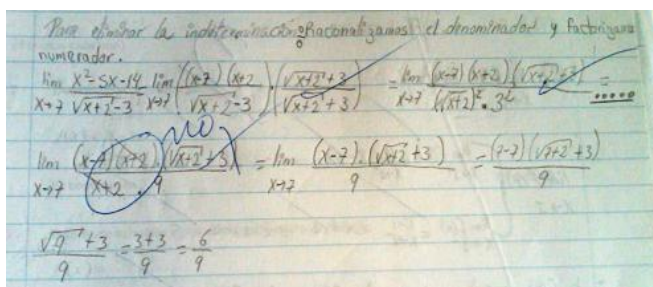 Para eliminar la indeterminación 0/0 Racionalizamos el denominador y factorizamos
numerador.
lim x→7 (x²-5x-14)/(√(x+2) - 3) lim x→7 ((x-7)(x+2)/(√(x+2) - 3)) · ((√(x+2) + 3)/(√(x+2) + 3)) = lim x→7 ((x-7)(x+2)·(√(x+2) + 3))/((√(x+2))² · 3²) = .....
NO
lim x→7 ((x-7)(x+2)·(√(x+2) + 3))/(x+2 · 9) = lim x→7 ((x-7)·(√(x+2) + 3))/9 = ((7-7)(√(7+2) + 3))/9
(√9 + 3)/9 = (3+3)/9 = 6/9